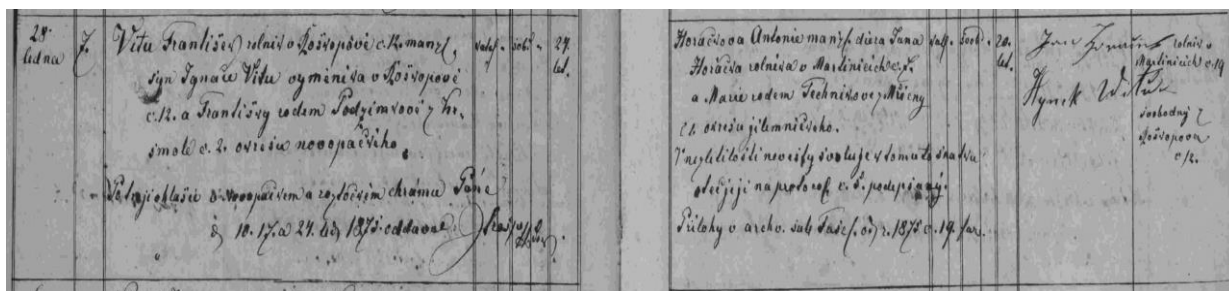 28.
ledna
7.
Vitu František rolník v Roškopově č. 12. manž.
syn Ignáce Vitu výměníka v Roškopově
č. 12. a Františky rodem Podzimkové z Kr-
smole č. 2. okresu novopackého.
Po trojí ohlášce v novopackém a roztockém chrámu Páně
10. 17. a 24. 1875. oddavne
katol. sob. 24.
let.
Horáčkova Antonie manž. dcera Jana
Horáčka rolníka v Martinicích č.
a Marie rodem Technikové z Mříčny
č. okresu jilemnického.
V nezletilosti nevěsty svoluje v tomuto sňatku
otec její na protokol podepsaný.
Přílohy v archu. sub r. 1875 č. 19. far.
kath. svob. 20.
let.
Jan rolník v
Martinicích č. 19
Hynek Vitu
svobodný z
Roškopova
č. 12.